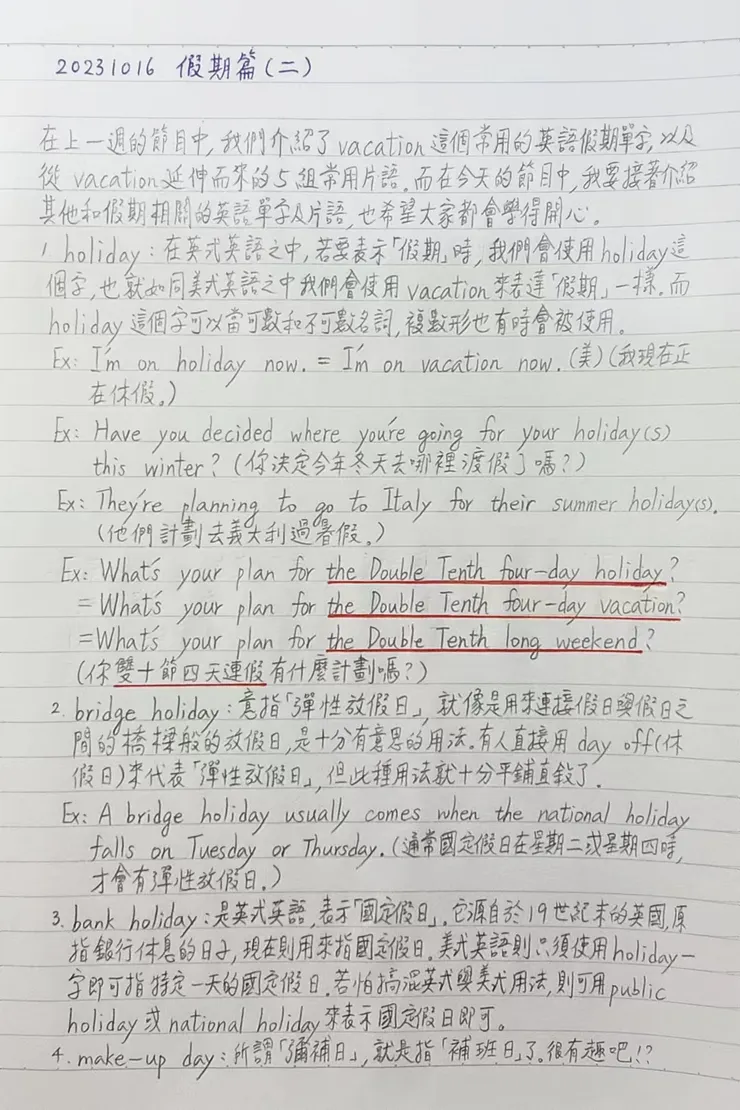 20231016 假期篇(二)
在上一週的節目中,我們介紹了vacation這個常用的英語假期單字,以及
從vacation延伸而來的5組常用片語。而在今天的節目中,我要接著介紹
其他和假期相關的英語單字及片語,也希望大家都會學得開心。
1 holiday:在英式英語之中,若要表示「假期」時,我們會使用holiday這
個字,也就如同美式英語之中我們會使用vacation來表達「假期」一樣。而
holiday這個字可以當可數和不可數名詞,複數形也有時會被使用。
Ex: I'm on holiday now. = I'm on vacation now. (美) (我現在正
在休假。)
Ex: Have you decided where you're going for your holiday(s)
this winter? (你決定今年冬天去哪裡渡假了嗎?)
Ex: They're planning to go to Italy for their summer holiday(s).
(他們計劃去義大利過暑假。)
Ex: What's your plan for the Double Tenth four-day holiday?
= What's your plan for the Double Tenth four-day vacation?
= What's your plan for the Double Tenth long weekend?
(你雙十節四天連假有什麼計劃嗎?)
2. bridge holiday:意指「彈性放假日」,就像是用來連接假日與假日之
間的橋樑般的放假日,是十分有意思的用法。有人直接用day off(休
假日)來代表「彈性放假日」,但此種用法就十分平鋪直敘了.
Ex: A bridge holiday usually comes when the national holiday
falls on Tuesday or Thursday. (通常國定假日在星期二或星期四時,
才會有彈性放假日。)
3. bank holiday:是英式英語,表示「國定假日」. 它源自於19世紀末的英國,原
指銀行休息的日子,現在則用來指國定假日. 美式英語則只須使用holiday一
字即可指特定一天的國定假日. 若怕搞混英式與美式用法,則可用public
holiday或national holiday來表示國定假日即可。
4. make-up day:所謂「彌補日」,就是指「補班日」了. 很有趣吧!?